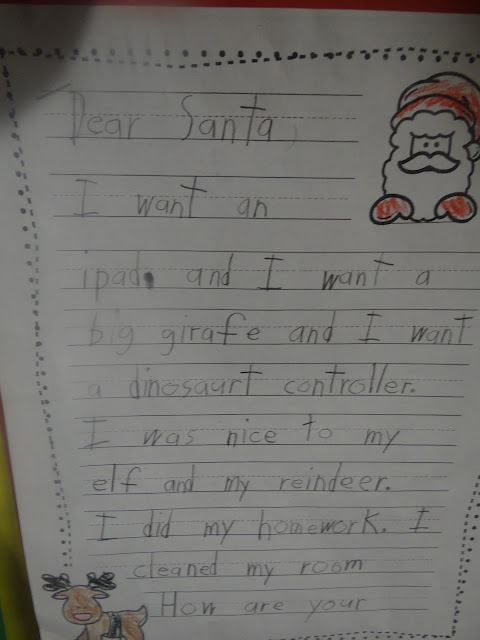 Dear Santa,
I want an
ipad. and I want a
big girafe and I want
a dinosaurt controller.
I was nice to my
elf and my reindeer.
I did my homework. I
cleaned my room
How are your